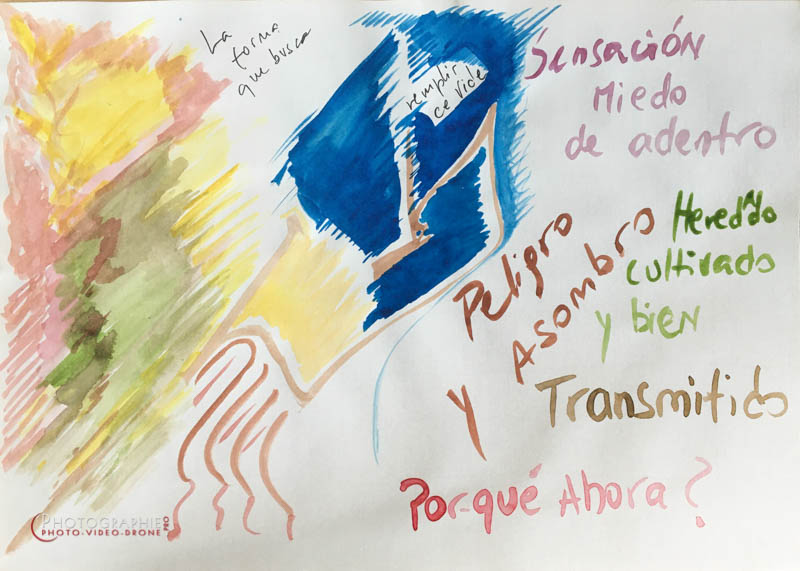 La
forma
que busca
remplir
ce vide
Sensación
Miedo
de adentro
Peligro
y Asombro
Heredado
cultivado
y bien
Transmitido
Por-qué Ahora?
PHOTOGRAPHIE PRO
PHOTO-VIDEO-DRONE